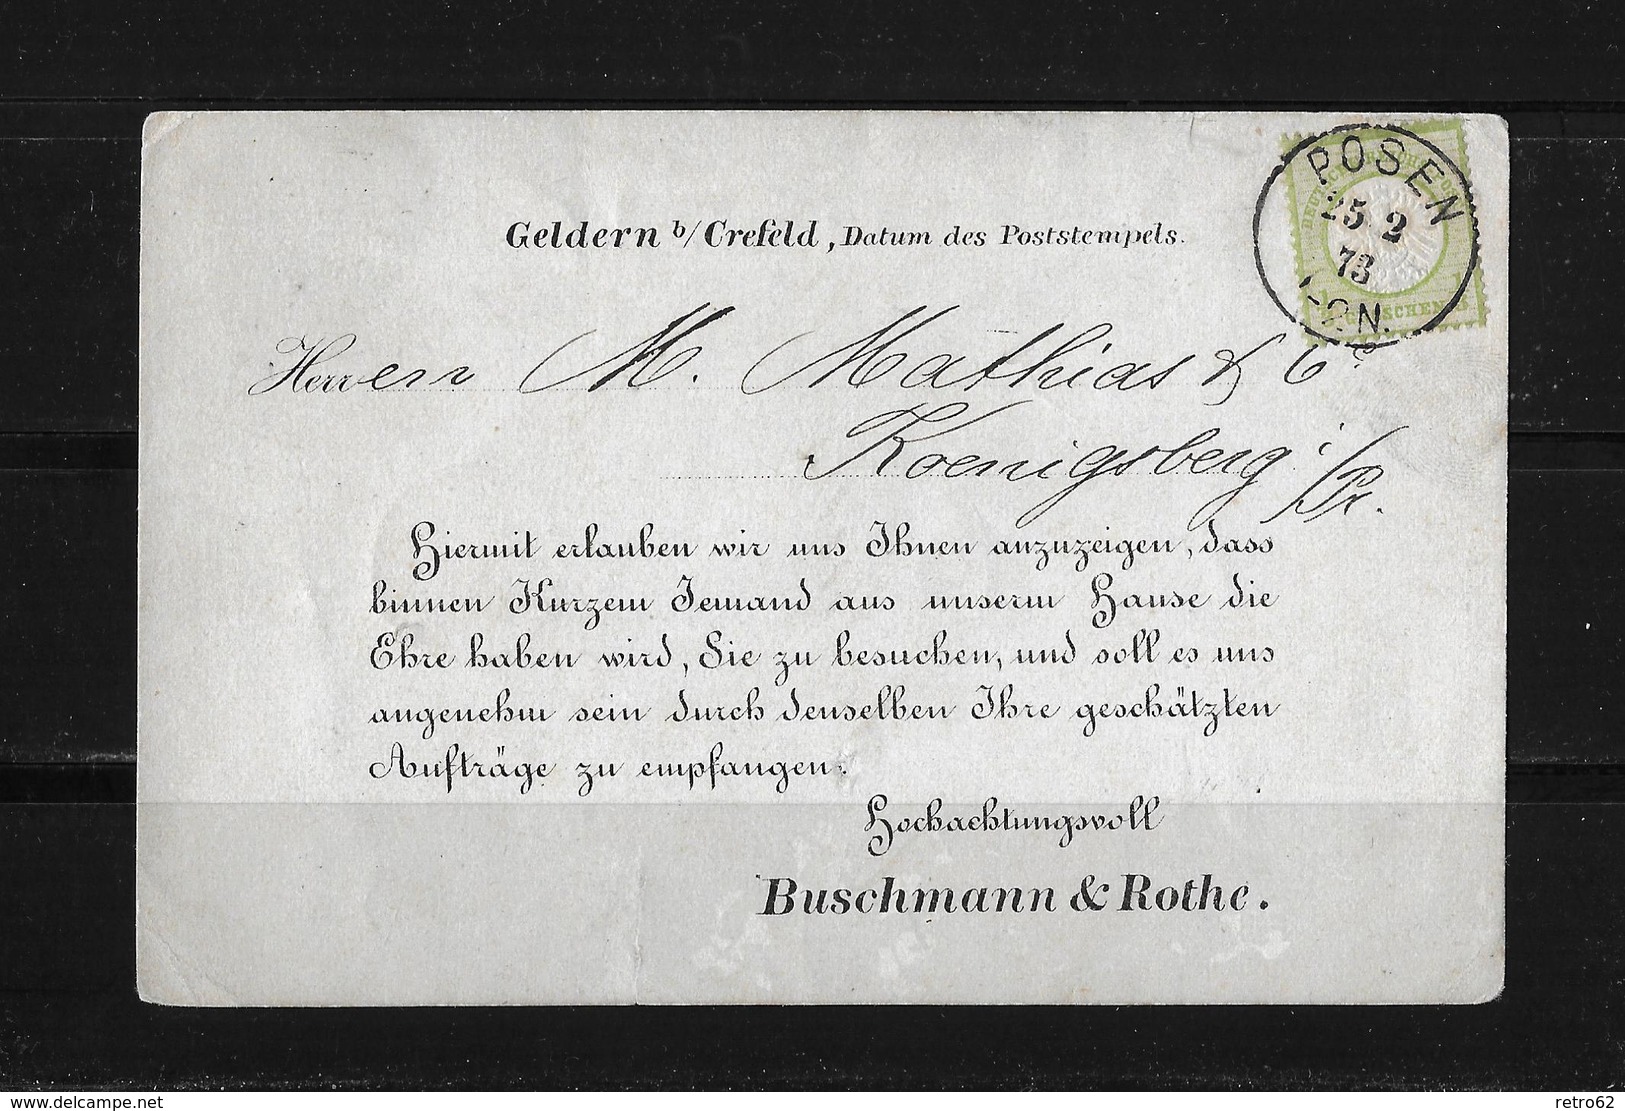 Geldern b/Crefeld, Datum des Poststempels.
POSEN
25 2
73
-2N.
Herren M. Mathias & Co
Koenigsberg i/Pr.
Hiermit erlauben wir uns Ihnen anzuzeigen, dass
binnen Kurzem Jemand aus unserm Hause die
Ehre haben wird, Sie zu besuchen, und soll es uns
angenehm sein durch denselben Ihre geschätzten
Aufträge zu empfangen.
Hochachtungsvoll
Buschmann & Rothe.
delcampe.net
retro62